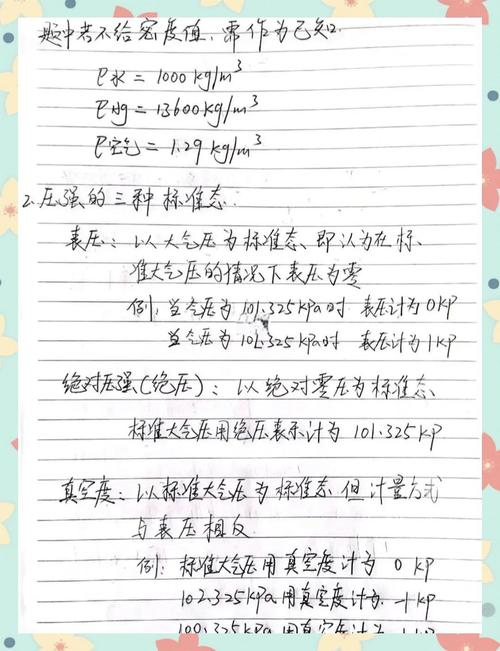 题中若不给密度值,需作为已知
ρ水 = 1000 kg/m³
ρHg = 13600 kg/m³
ρ空气 = 1.29 kg/m³
2. 压强的三种标准态.
表压: 以大气压为标准态、即认为在标、
准大气压的情况下表压为零
例: 当气压为 101.325kPa时 表压计为 0 kP
当气压为 102.325kPa时 表压计为 1 kP
绝对压强(绝压): 以绝对零压为标准态、
标准大气压用绝压表示计为 101.325 kP
真空度: 以标准大气压为标准态 但计量方式
与表压相反.
例: 标准大气压用真空度计为 0 kP
102.325kPa 用真空度计为 -1 kP
100.325kPa 用真空度计为 1 kP